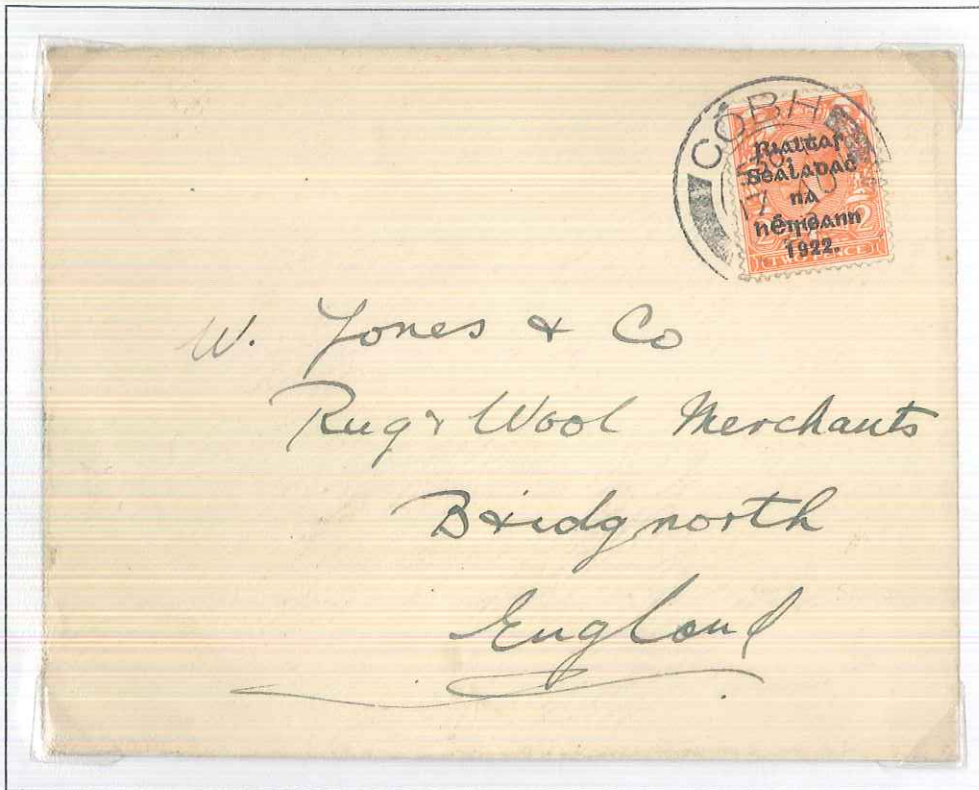 COBH
17 AU
Rialtas
Sealadaċ
na
hÉireann
1922.
2 2
TWO PENCE
W. Jones & Co
Rug & Wool Merchants
Bridgnorth
England